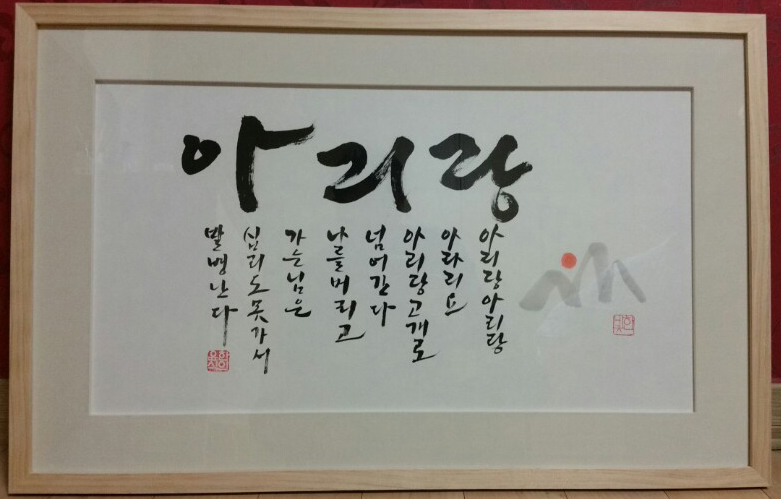 아리랑
아리랑아리랑
아라리요
아리랑고개로
넘어간다
나를버리고
가는님은
십리도못가서
발병난다